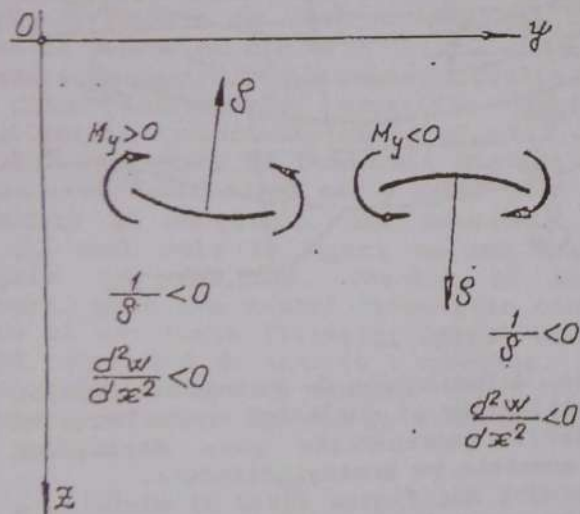 0
y
M_y>0
ρ
M_y<0
1/ρ<0
d²w/dx²<0
ρ
1/ρ<0
d²w/dx²<0
z